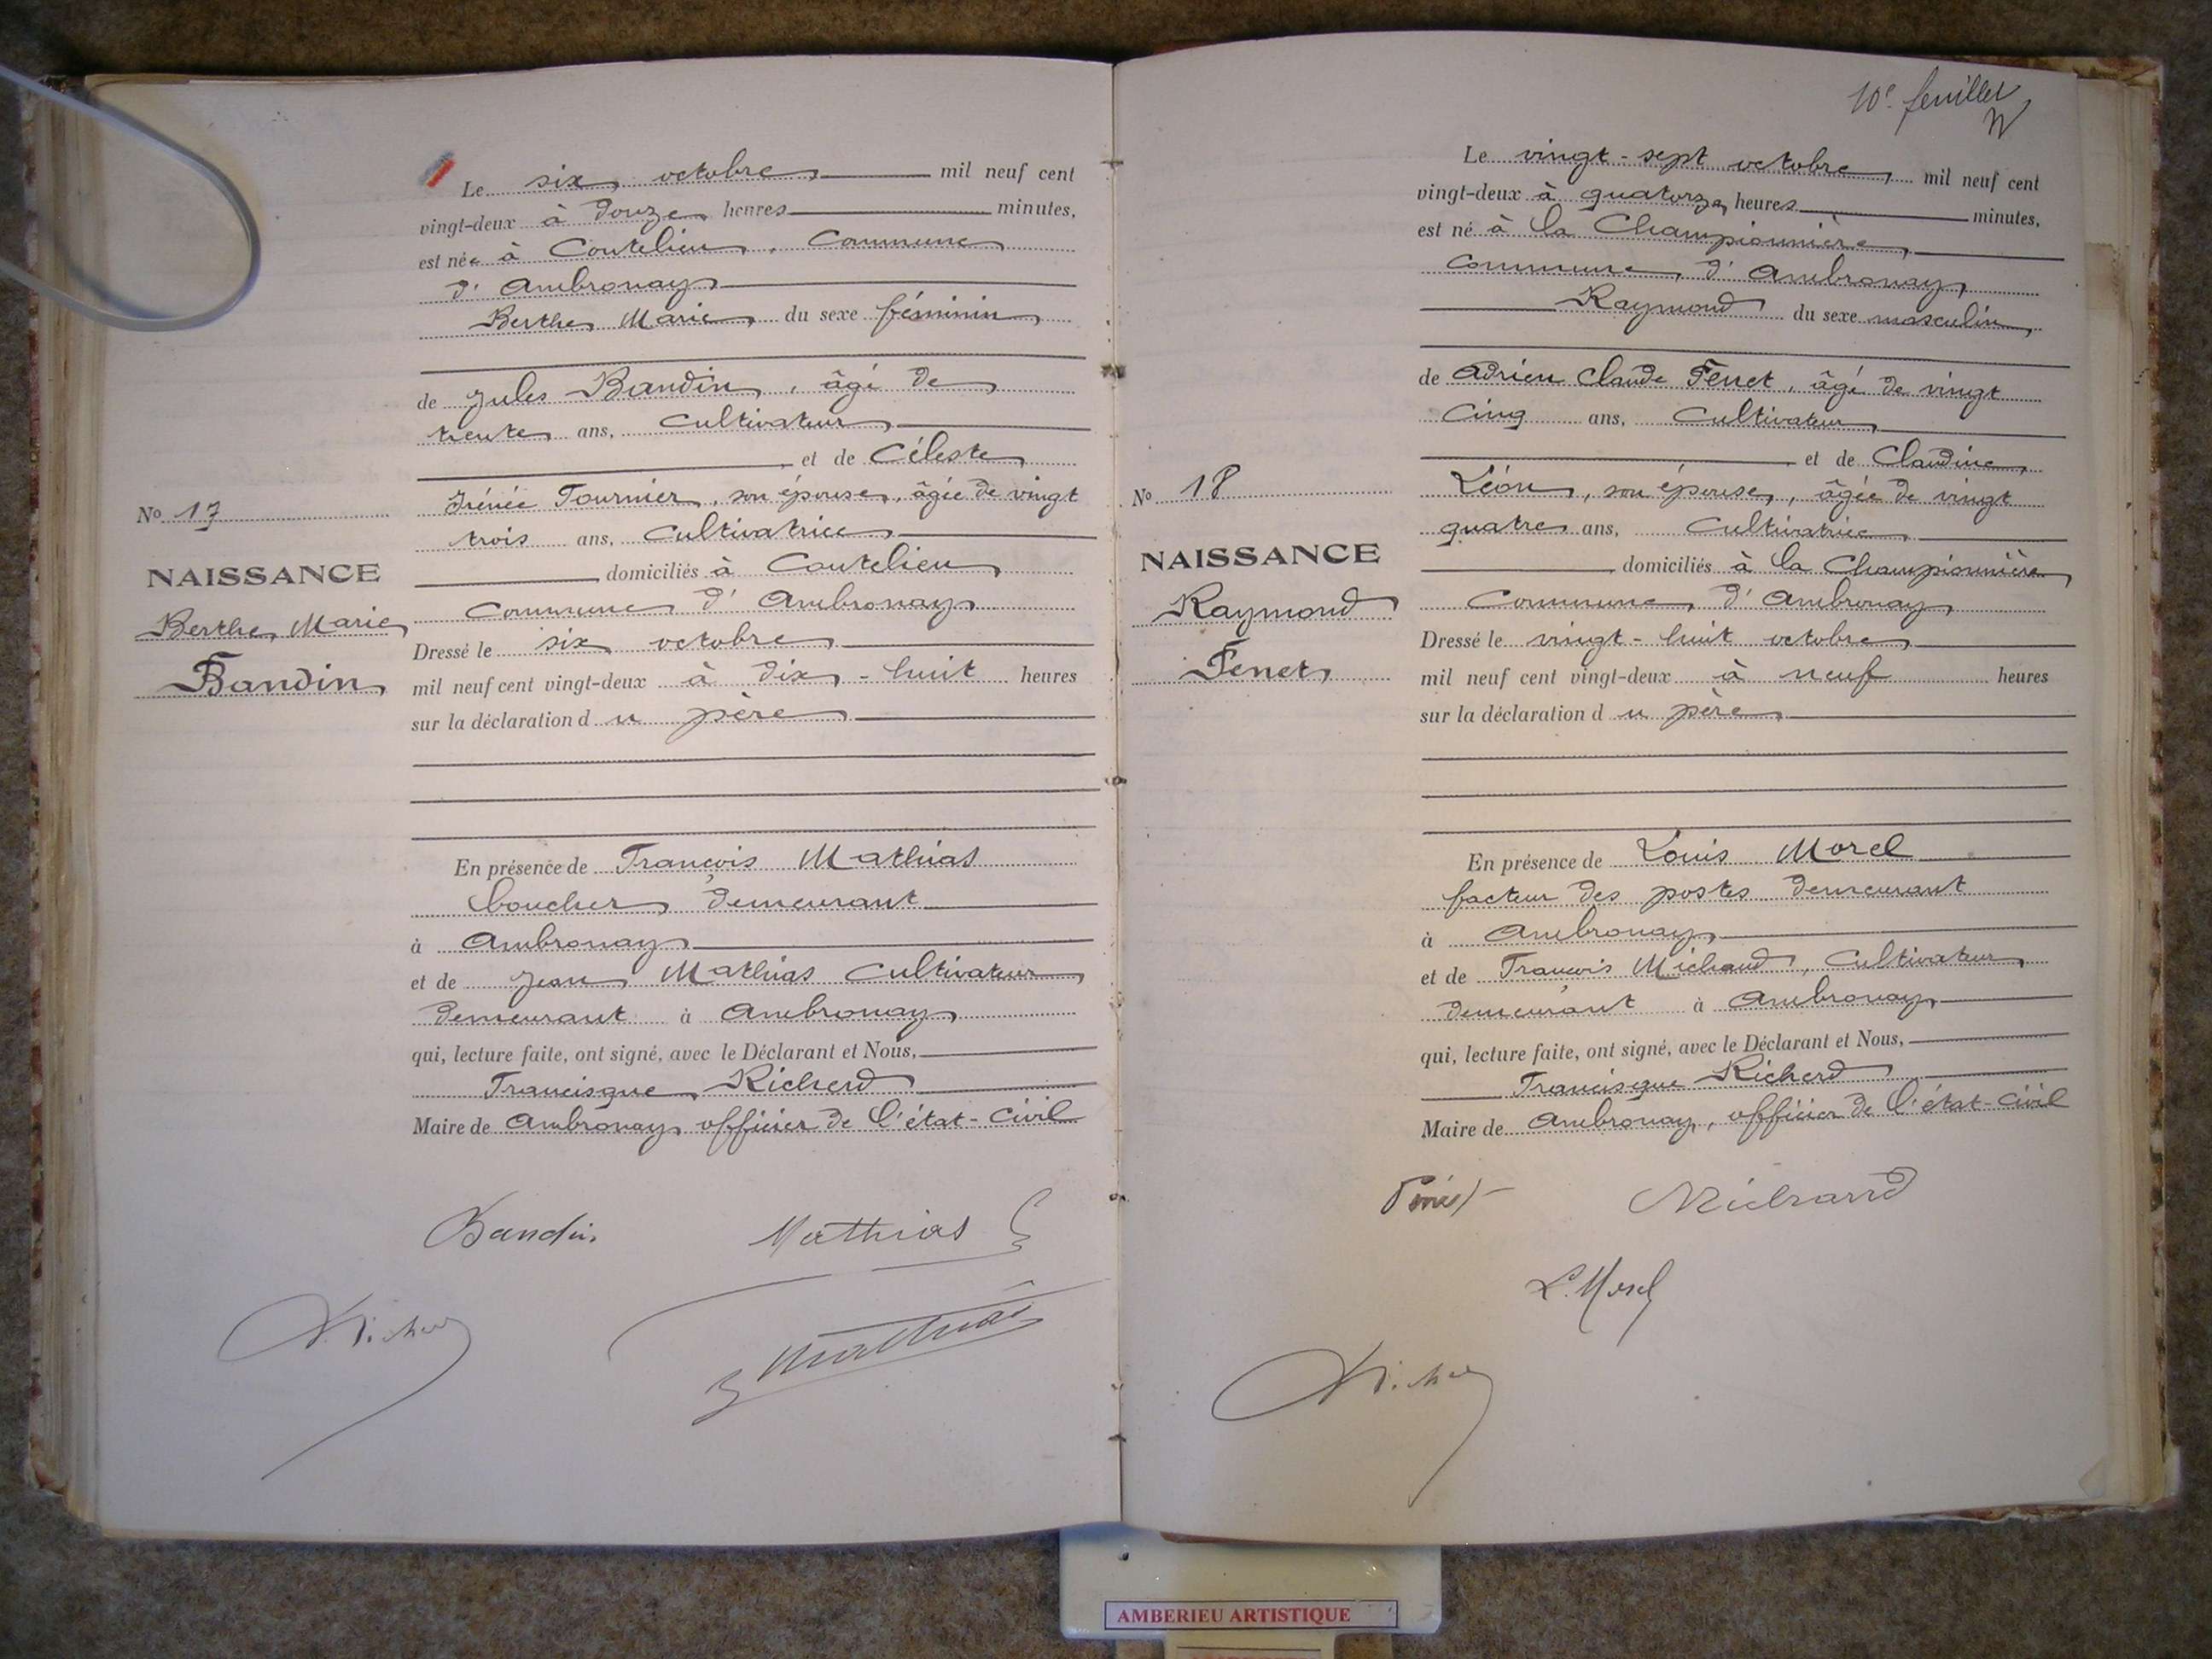 Le six octobre mil neuf cent
vingt-deux à douze heures minutes,
est née à Coutelieu, Commune
d'Ambronay
Berthe Marie du sexe féminin
de Jules Baudin, âgé de
trente ans, Cultivateur
et de Céleste
Irénée Tournier, son épouse, âgée de vingt
trois ans, Cultivatrice
domiciliés à Coutelieu
Commune d'Ambronay
Dressé le six octobre
mil neuf cent vingt-deux à dix-huit heures
sur la déclaration du père
En présence de François Mathias
boucher demeurant
à Ambronay
et de Jean Mathias Cultivateur
demeurant à Ambronay
qui, lecture faite, ont signé, avec le Déclarant et Nous,
Francisque Richerd
Maire de Ambronay officier de l'état-Civil
No 17
NAISSANCE
Berthe Marie
Baudin
Baudin
Mathias
Mathias
10e feuillet
Le vingt-sept octobre mil neuf cent
vingt-deux à quatorze heures minutes,
est né à la Championnière
Commune d'Ambronay
Raymond du sexe masculin
de Adrien Claude Fenet, âgé de vingt
Cinq ans, Cultivateur
et de Claudine
Léon, son épouse, âgée de vingt
quatre ans, Cultivatrice
domiciliés à la Championnière
Commune d'Ambronay
Dressé le vingt-huit octobre
mil neuf cent vingt-deux à neuf heures
sur la déclaration du père
En présence de Louis Morel
facteur des postes demeurant
à Ambronay
et de François Michaud, Cultivateur
demeurant à Ambronay
qui, lecture faite, ont signé, avec le Déclarant et Nous,
Francisque Richerd
Maire de Ambronay, officier de l'état-Civil
No 18
NAISSANCE
Raymond
Fenet
Michaud
L. Morel
AMBERIEU ARTISTIQUE